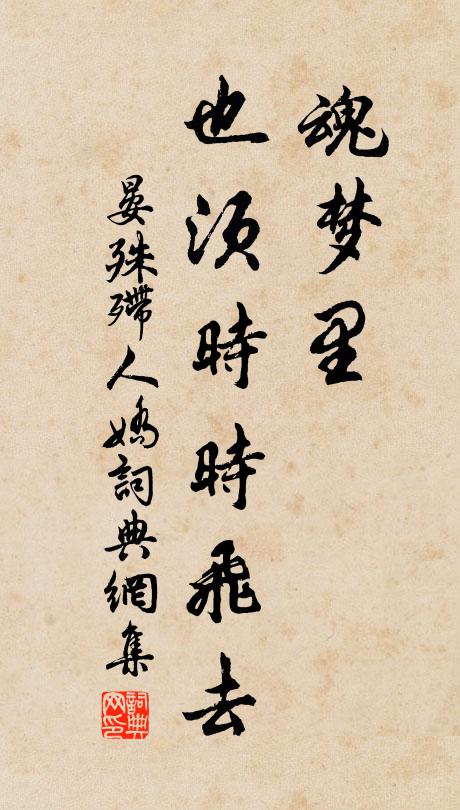 魂梦里
也须時時飛去
晏殊殢人嬌詞典網集
詞典网印